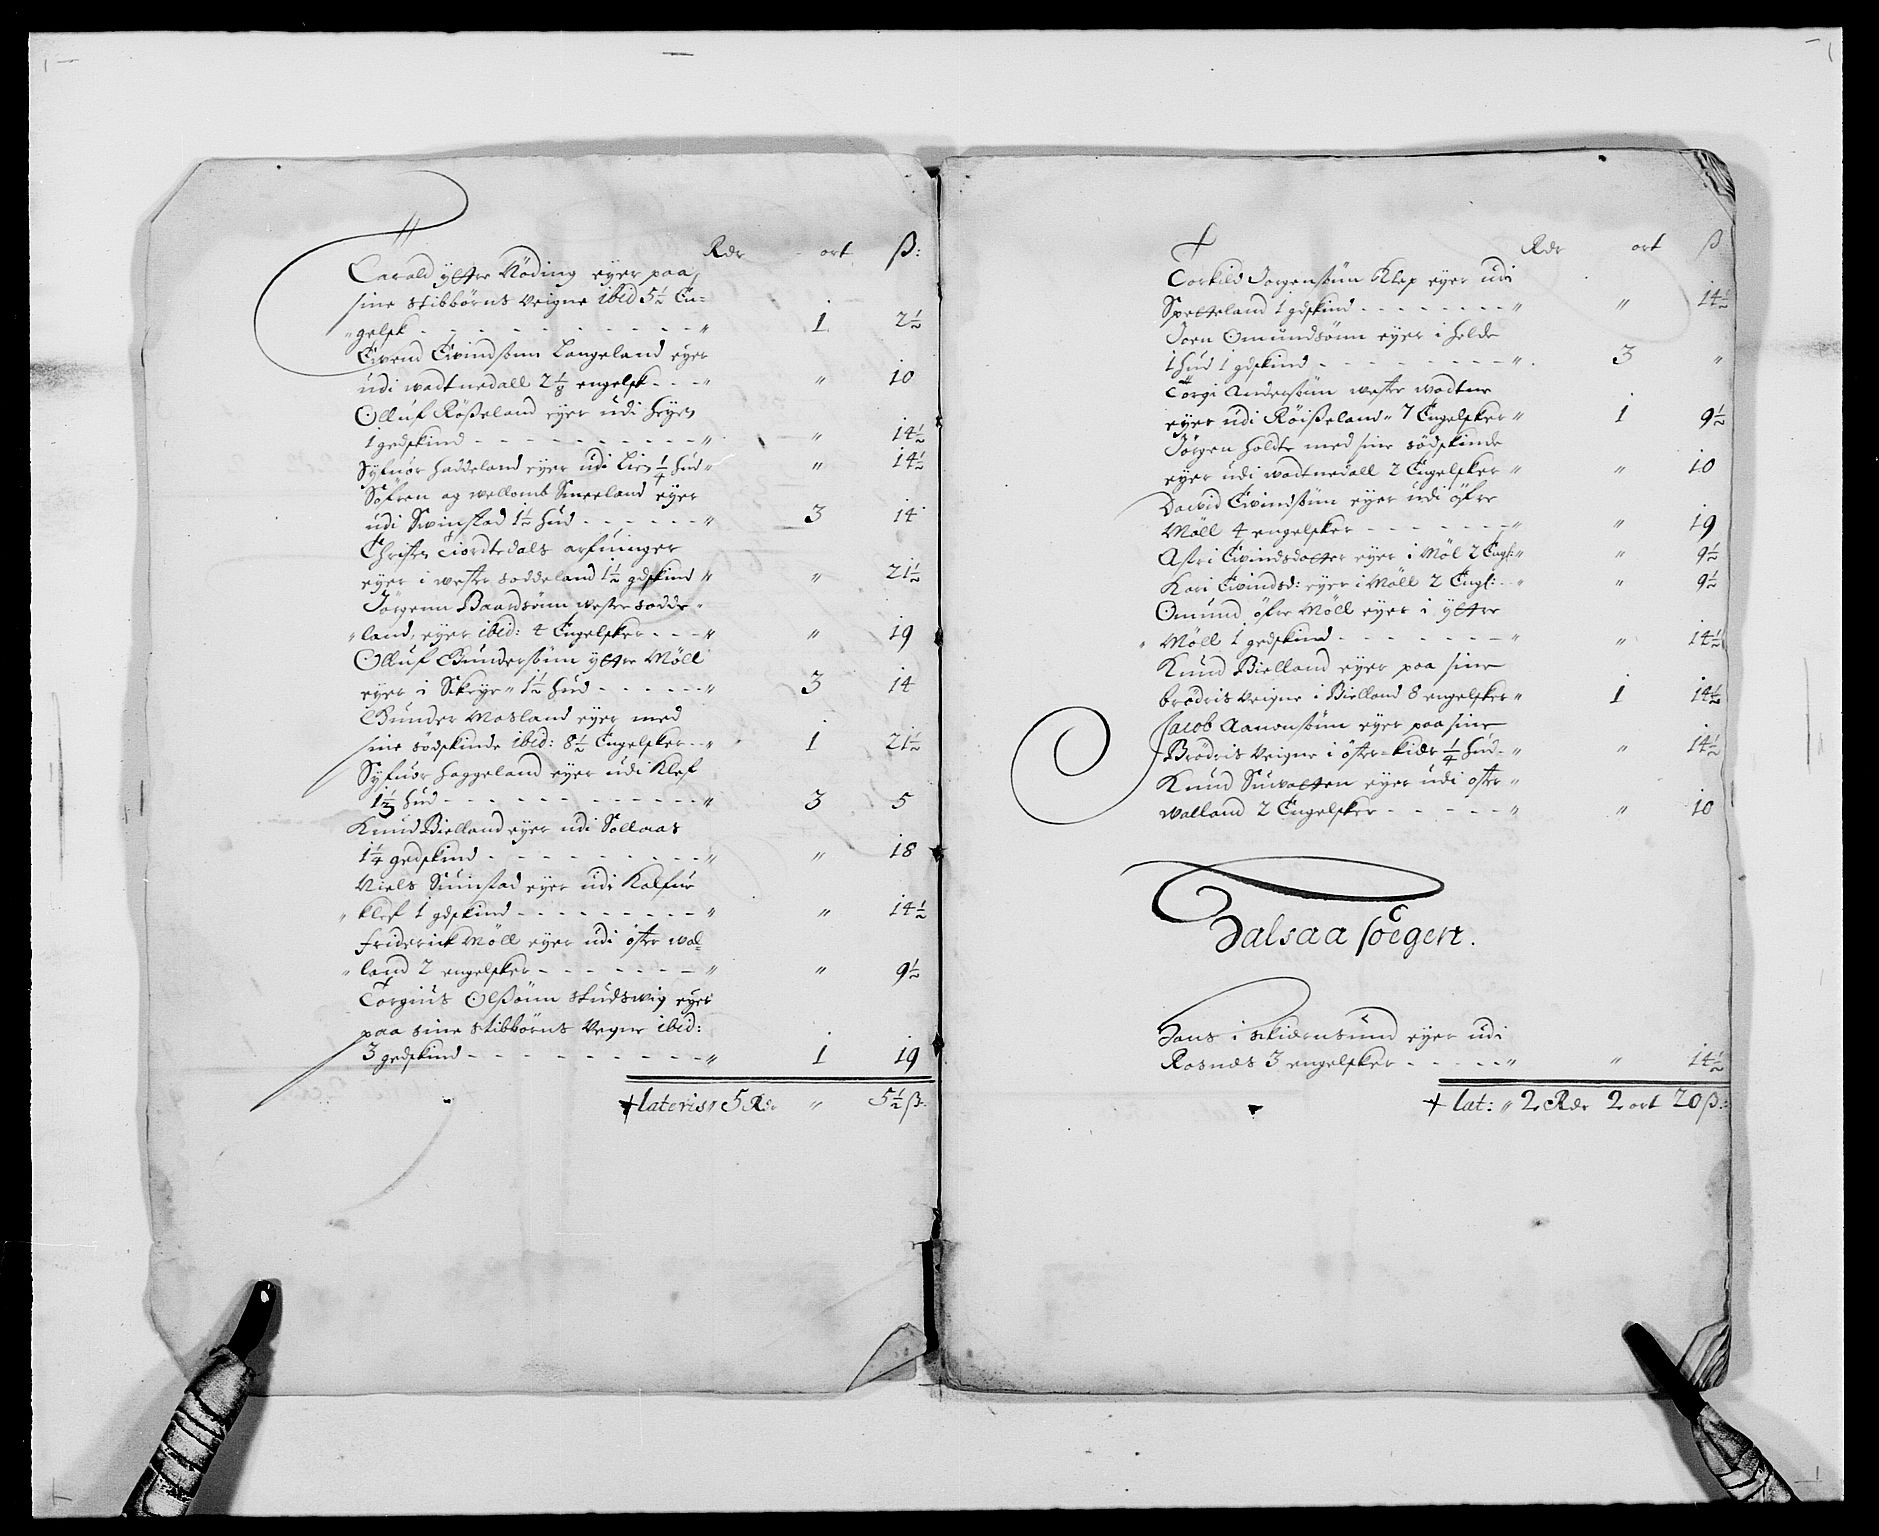 Rdr ort ß:
Carald yttre Nöding eyer paa
sine stibbörns veigne ibid 5½ En-
gelsk - - - " 1 2½
Eivend Eivindsönn Langeland eyer
udi wadtnedall 2⅛ engelsk - - " " 10
Olluf Rößeland eyer udi Heyen
1 gedskind - - - " " 14½
Syfuor Haddeland eyer udi Lien ¼ hud " " 14½
Söfren og wellomb Smeeland eyer
udi Svinstad 1½ hud - - - " 3 14
Christen Fiordtedals arfuinger
eyer i wester soddeland 1½ gdskind " " 21½
Jörgenn Baardsönn wester sodde-
land, eyer ibid: 4 Engelsker - - " " 19
Olluf Gundersönn yttre Möll
eyer i Skeye " 1½ hud - - - " 3 14
Gunder Mosland eyer med
sine södskinde ibid: 8½ Engelsker - " 1 21½
Syfuor Haggeland eyer udi Klef
1⅓ hud - - - " 3 5
Knud Bielland eyer udi Sollaas
1¼ gedskind - - - " " 18
Niels Suinstad eyer udi Kalfue
klef 1 gdskind - - - " " 14½
Friderick Möll eyer udi öster wal-
land 2 engelsker - - - " " 9½
Torgius Olßönn studswig eyer
paa sine stibbörns vegne ibid:
3 gedskind - - - " 1 19
lateris 5 Rdr " 5½ ß:
Rdr ort ß
Torkild Jorgensönn Klep eyer udi
Spetteland 1 gdskind - - - " " 14½
Joen Omundsönn eyer i Helde
1 hud 1 gdskind - - - " 3 "
Torgi Andersönn westre wadtne
eyer udi Röißeland " 7 Engelsker " 1 9½
Jörgen Holdte med sine södskinde
eyer udi wadtnedall 2 Engelsker " " 10
David Eivindsönn eyer udi öfre
Möll 4 engelsker - - - " " 19
Astri Eivindsdotter eyer i Möl 2 Engl: " " 9½
Kari Eivindsd: eyer i Möll 2 Engl: - " " 9½
Omund öfre Möll eyer i yttre
Möll 1 gedskind - - - " " 14½
Knud Bielland eyer paa sine
brödris veigne i Bielland 8 engelsker " 1 14½
Jacob Aanonsönn eyer paa sine
Brödris veigne i öster-kidr ¼ hud - " " 14½
Knud Suivatten eyer udi oster
walland 2 Engelsker - - - " " 10
Halsaa soegen.
Jens i skiernsund eyer udi
Rosnæs 3 engelsker - - - " " 14½
lat: " 2 Rdr 2 ort 20 ß: